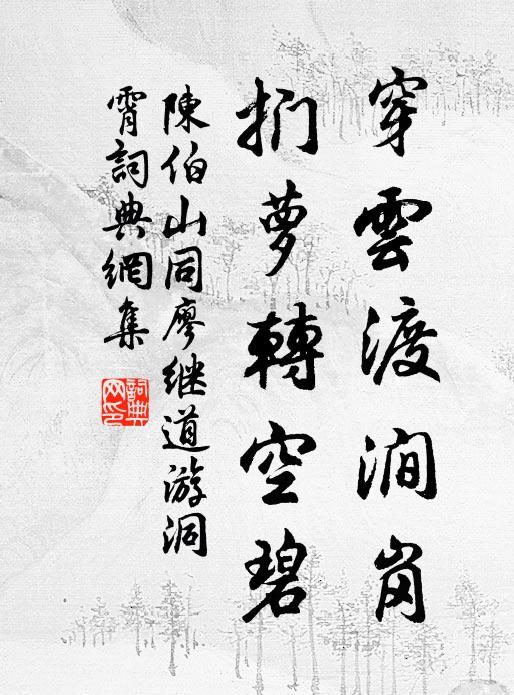 穿雲渡澗岗
捫萝轉空碧
陳伯山同廖继道游洞
霄詞典網集
詞典
网印